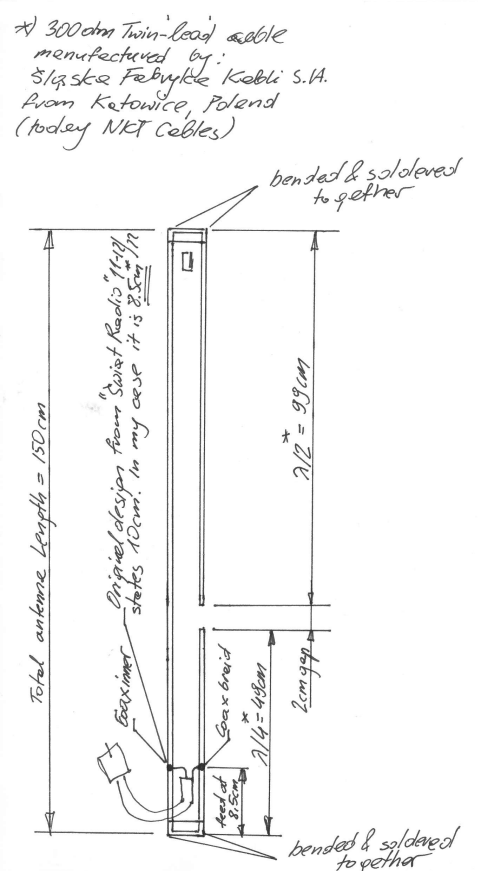 *) 300 ohm Twin-lead cable
manufactured by:
Śląska Fabryka Kabli S.A.
from Katowice, Poland
(today NKT Cables)
bended & soldered
together
Total antenna length = 150cm
Original design from "Świat Radio" 11-12/
states 10cm. In my case it is 8.5cm*
λ/2* = 99cm
Coax inner
Coax braid
λ/4* = 49cm
2cm gap
feed at
8,5cm
bended & soldered
together